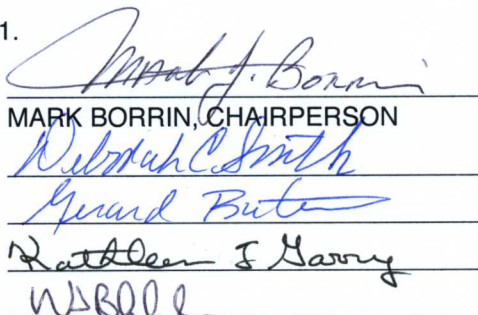 1.
Mark J. Borrin
MARK BORRIN, CHAIRPERSON
Deborah C. Smith
Gerard
Kathleen J Garry